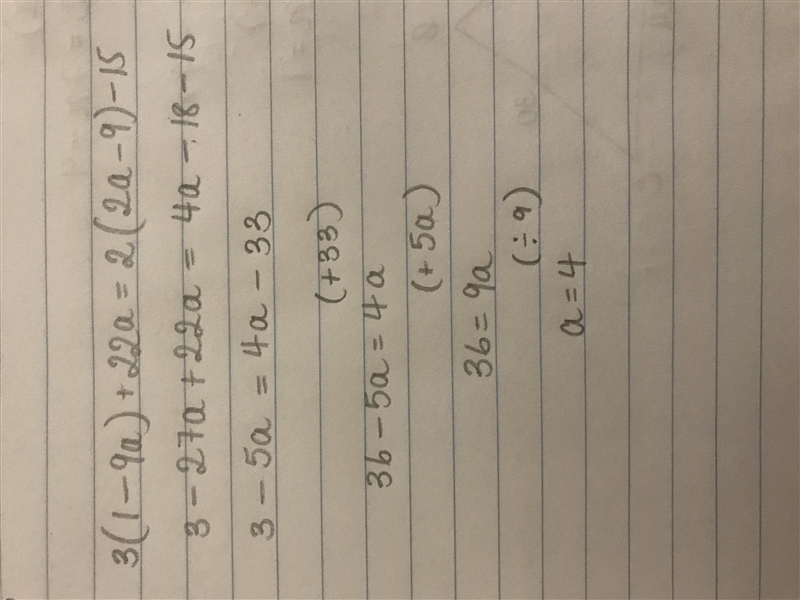 3(1-9a)+22a=2(2a-9)-15
3-27a+22a=4a-18-15
3-5a=4a-33
(+33)
36-5a=4a
(+5a)
36=9a
(÷9)
a=4